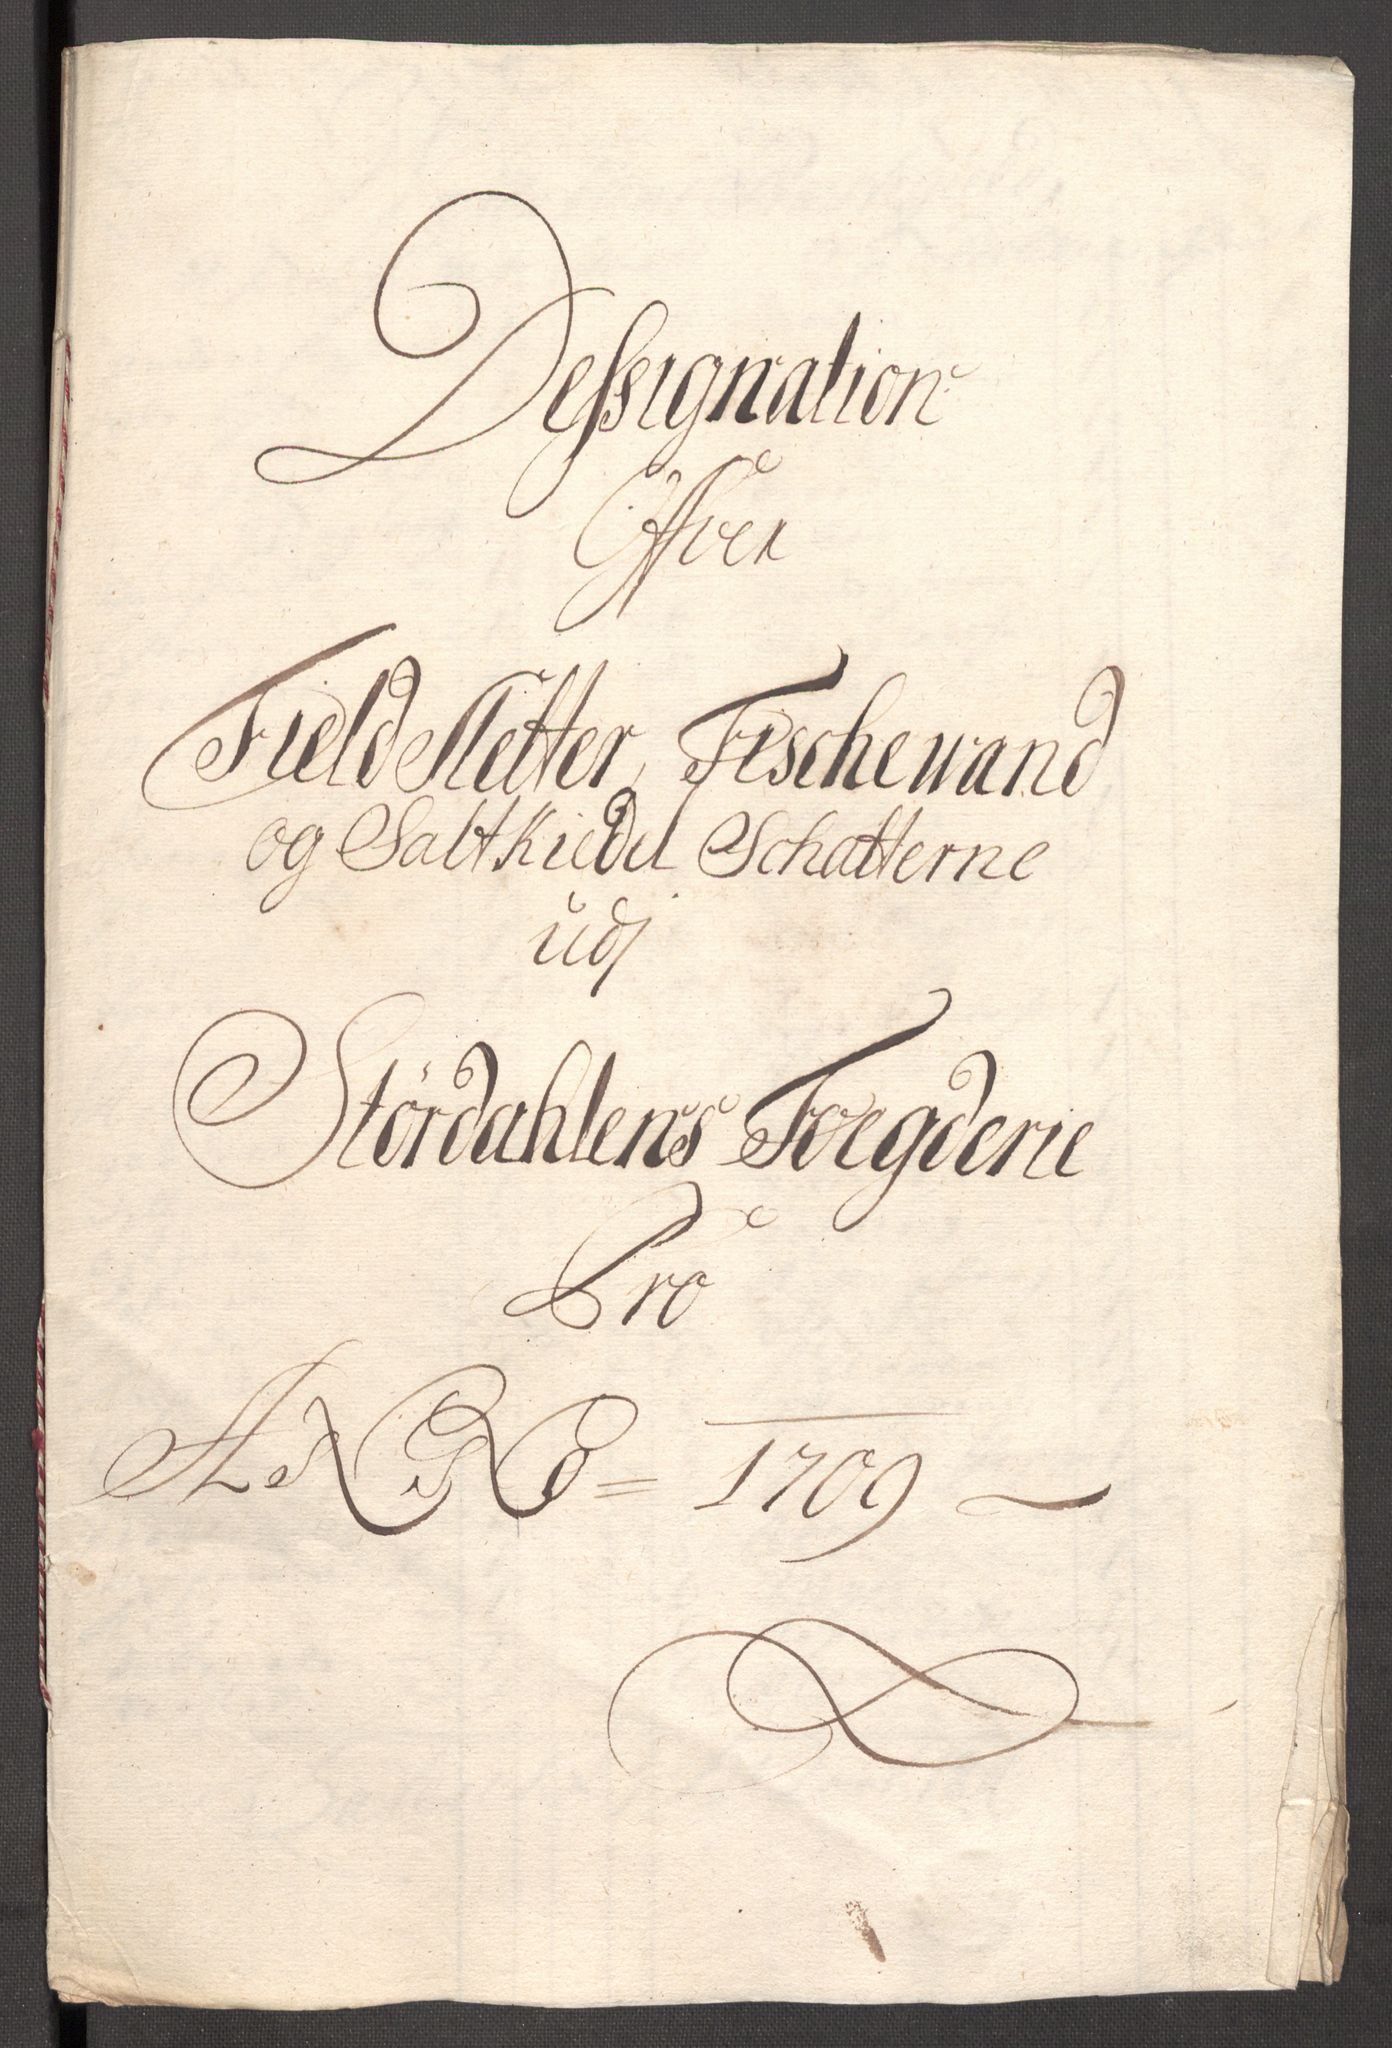 Dessignation
Offver
Field Sletter, Fischewand
og Saltkiedel Schatterne
udj
Stördahlens Foegderie
Pro
ANNO = 1709